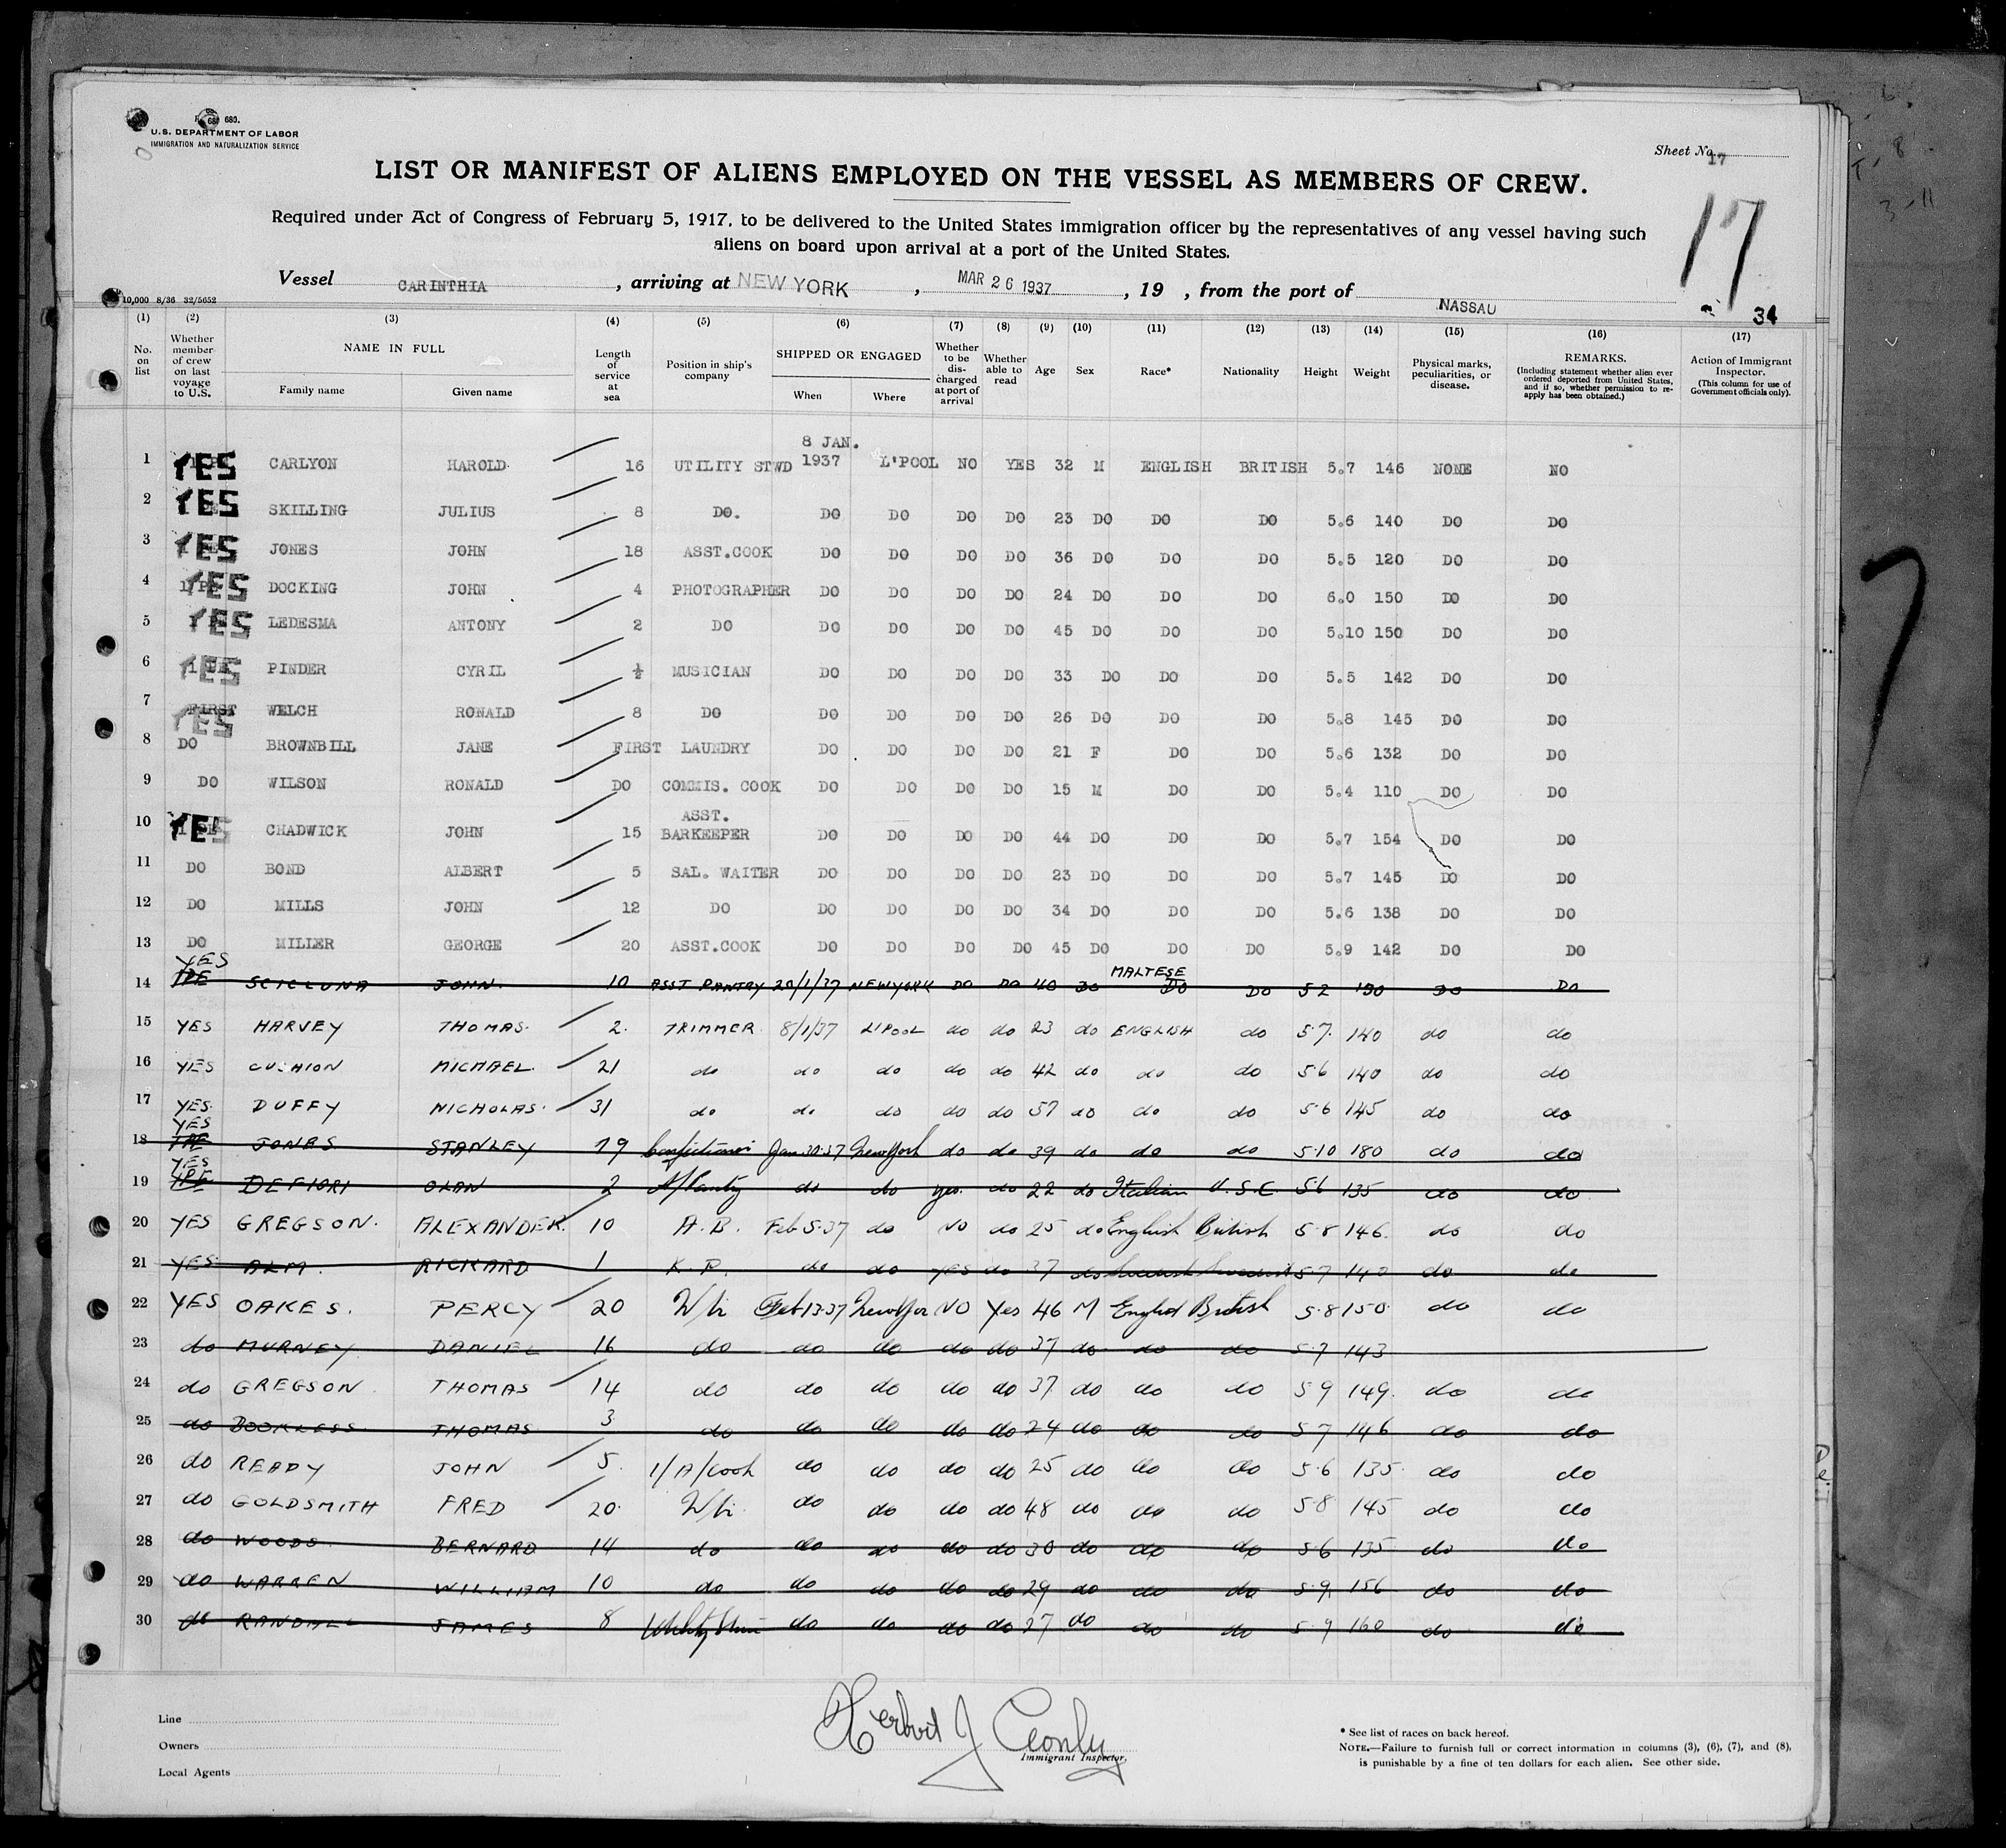 680.
U.S. DEPARTMENT OF LABOR
IMMIGRATION AND NATURALIZATION SERVICE
Sheet No. 17
LIST OR MANIFEST OF ALIENS EMPLOYED ON THE VESSEL AS MEMBERS OF CREW.
17
Required under Act of Congress of February 5, 1917, to be delivered to the United States immigration officer by the representatives of any vessel having such
aliens on board upon arrival at a port of the United States.
Vessel CARINTHIA, arriving at NEW YORK, MAR 26 1937, 19 , from the port of NASSAU
10,000 8/36 32/5652
34
(1) (2) (3) (4) (5) (6) (7) (8) (9) (10) (11) (12) (13) (14) (15) (16) (17)
No. on list
Whether member of crew on last voyage to U.S.
NAME IN FULL
Family name
Given name
Length of service at sea
Position in ship's company
SHIPPED OR ENGAGED
When
Where
Whether to be discharged at port of arrival
Whether able to read
Age
Sex
Race*
Nationality
Height
Weight
Physical marks, peculiarities, or disease.
REMARKS.
(Including statement whether alien ever ordered deported from United States, and if so, whether permission to reapply has been obtained.)
Action of Immigrant Inspector.
(This column for use of Government officials only).
8 JAN.
1 YES CARLYON HAROLD 16 UTILITY STWD 1937 L'POOL NO YES 32 M ENGLISH BRITISH 5.7 146 NONE NO
2 YES SKILLING JULIUS 8 DO. DO DO DO DO 23 DO DO DO 5.6 140 DO DO
3 YES JONES JOHN 18 ASST.COOK DO DO DO DO 36 DO DO DO 5.5 120 DO DO
4 YES DOCKING JOHN 4 PHOTOGRAPHER DO DO DO DO 24 DO DO DO 6.0 150 DO DO
5 YES LEDESMA ANTONY 2 DO DO DO DO DO 45 DO DO DO 5.10 150 DO DO
6 YES PINDER CYRIL ½ MUSICIAN DO DO DO DO 33 DO DO DO 5.5 142 DO DO
7 FIRST YES WELCH RONALD 8 DO DO DO DO DO 26 DO DO DO 5.8 145 DO DO
8 DO BROWNBILL JANE FIRST LAUNDRY DO DO DO DO 21 F DO DO 5.6 132 DO DO
9 DO WILSON RONALD DO COMMIS. COOK DO DO DO DO 15 M DO DO 5.4 110 DO DO
ASST.
10 YES CHADWICK JOHN 15 BARKEEPER DO DO DO DO 44 DO DO DO 5.7 154 DO DO
11 DO BOND ALBERT 5 SAL. WAITER DO DO DO DO 23 DO DO DO 5.7 145 DO DO
12 DO MILLS JOHN 12 DO DO DO DO DO 34 DO DO DO 5.6 138 DO DO
13 DO MILLER GEORGE 20 ASST.COOK DO DO DO DO 45 DO DO DO 5.9 142 DO DO
YES MALTESE
14 SCICLUNA JOHN 10 ASST PANTRY 20/1/37 NEWYORK DO DO 40 DO DO DO 5 2 130 DO DO
15 YES HARVEY THOMAS. 2. TRIMMER 8/1/37 L'POOL do do 23 do ENGLISH do 5.7. 140 do do
16 YES CUSHION MICHAEL. 21 do do do do do 42 do do do 5.6 140 do do
17 YES. DUFFY NICHOLAS. 31 do do do do do 57 do do do 5.6 145 do do
YES
18 JONES STANLEY 19 Jan 30.37 New York do do 39 do do do 5.10 180 do do
YES
19 DEFIORI OLAN 2 A/Pantry do do yes. do 22 do Italian U.S.C. 5.6 135 do do
20 YES GREGSON. ALEXANDER. 10 A.B. Feb 5.37 do NO do 25 do English British 5.8 146. do do
21 YES ALM. RICKARD 1 K.P. do do YES do 37 do Swedish Swedish 5.7 140 do do
22 YES OAKES. PERCY 20 Feb 13.37 New Yor NO Yes 46 M English British 5.8 150. do do
23 do MURNEY DANIEL 16 do do do do do 37 do do do 5.7 143
24 do GREGSON THOMAS 14 do do do do do 37. do do do 5 9 149. do do
25 do BOOKLESS THOMAS 3 do do do do do 24 do do do 5 7 146 do do
26 do READY JOHN 5. 1/A/Cook do do do do 25 do do do 5.6 135. do do
27 do GOLDSMITH FRED 20. do do do do 48 do do do 5.8 145 do do
28 do WOODS BERNARD 14 do do do do do 30 do do do 5.6 135 do do
29 do WARREN WILLIAM 10 do do do do do 29 do do do 5.9. 156 do do
30 do RANDALL JAMES 8 do do do do 27 do do do 5.9 160 do do
Line
Owners
Local Agents
Herbert J
Immigrant Inspector.
* See list of races on back hereof.
NOTE.—Failure to furnish full or correct information in columns (3), (6), (7), and (8),
is punishable by a fine of ten dollars for each alien. See other side.